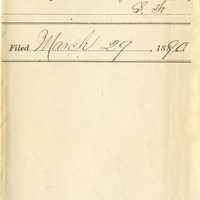 S. F.
Filed March 29, 1890.